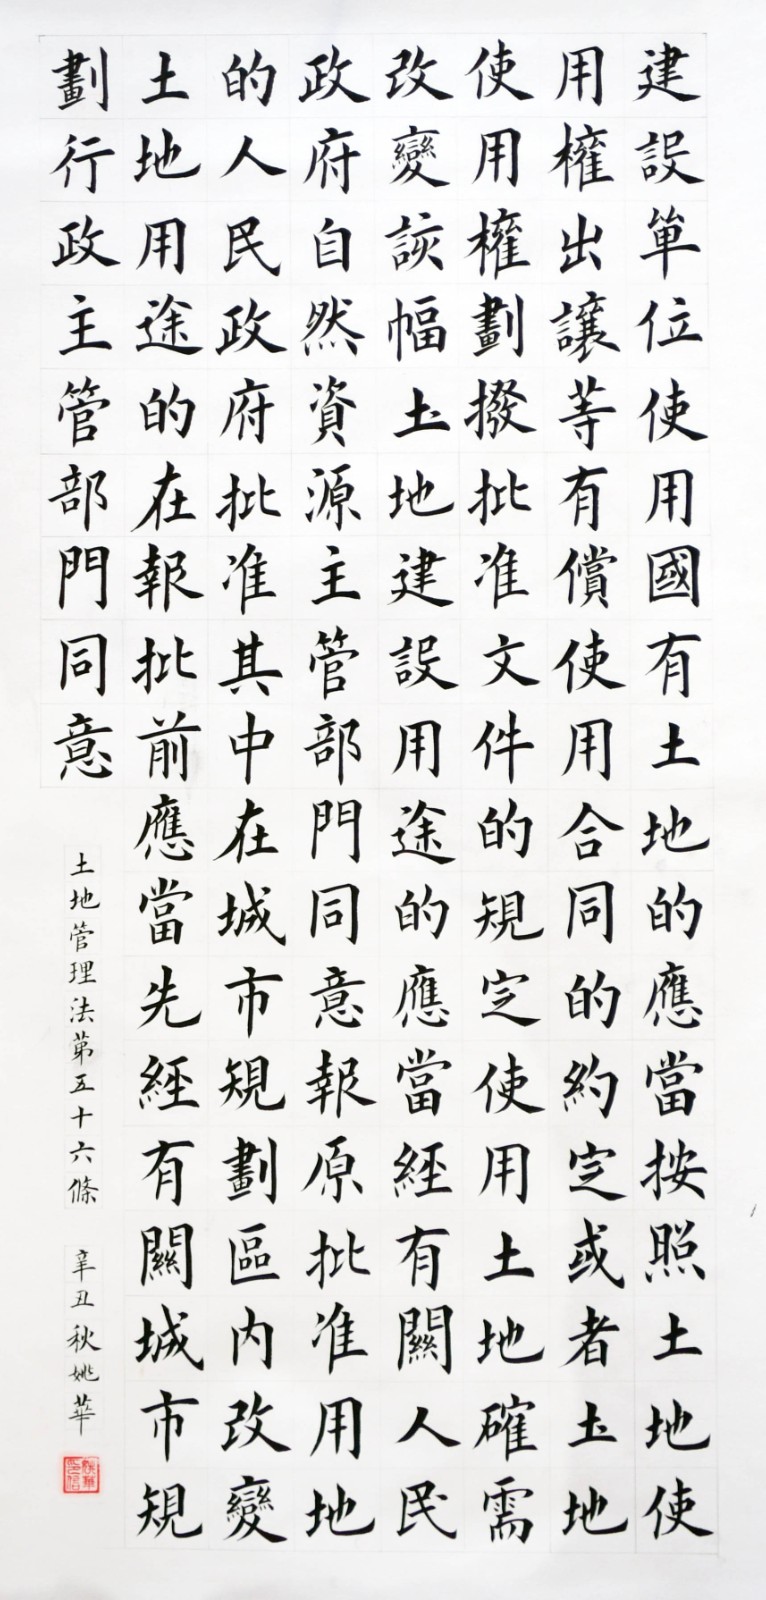 建設單位使用國有土地的應當按照土地使
用權出讓等有償使用合同的約定或者土地
使用權劃撥批准文件的規定使用土地確需
改變該幅土地建設用途的應當經有關人民
政府自然資源主管部門同意報原批准用地
的人民政府批准其中在城市規劃區內改變
土地用途的在報批前應當先經有關城市規
劃行政主管部門同意
土地管理法第五十六條
辛丑秋姚華